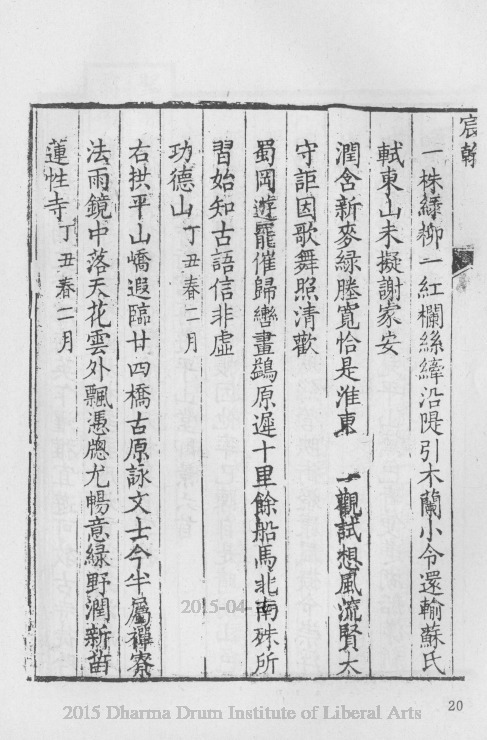 宸翰
一株綠柳一紅欄絲縴沿隄引木蘭小令還輸蘇氏
軾東山未擬謝家安
潤含新麥綠塍寬恰是淮東 一觀試想風流賢太
守詎因歌舞照清歡
蜀岡遊罷催歸轡畫鷁原遲十里餘船馬北南殊所
習始知古語信非虛
功德山丁丑春二月
右拱平山嶠遐臨廿四橋古原詠文士今半屬禪寮
法雨鏡中落天花雲外飄憑牕尤暢意綠野潤新苗
蓮性寺丁丑春二月
2015-04-
20
2015 Dharma Drum Institute of Liberal Arts